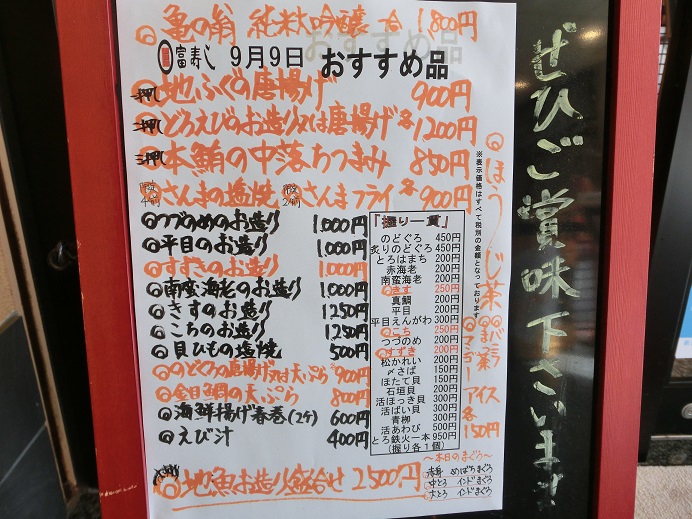 ◎亀の翁 純米大吟醸 一合 1,800円
富寿し 9月9日 おすすめ品
一押し 地ふぐの唐揚げ 900円
二押し どろえびのお造り又は唐揚げ 各1200円
三押し 本鮪の中落ちつまみ 850円
◎さんまの塩焼 ◎さんまフライ 各900円
◎つづのめのお造り 1,000円
◎平目のお造り 1,000円
◎すずきのお造り 1,000円
◎南蛮海老のお造り 1,000円
◎きすのお造り 1250円
◎こちのお造り 1250円
◎貝ひもの塩焼 500円
◎のどぐろの唐揚げ又は天ぷら 900円
◎金目鯛の天ぷら 800円
◎海鮮揚げ春巻(2ケ) 600円
◎えび汁 400円
◎地魚お造り盛合せ 2500円
「握り一貫」
のどぐろ 450円
炙りのどぐろ 450円
とろはまち 200円
赤海老 200円
南蛮海老 200円
◎きす 250円
真鯛 200円
平目 200円
平目えんがわ 300円
◎こち 250円
つづのめ 200円
◎すずき 200円
松かれい 200円
〆さば 150円
ほたて貝 150円
石垣貝 200円
活ほっき貝 300円
活ばい貝 300円
青柳 200円
活あわび 500円
とろ鉄火一本 950円
(握り各1個)
～本日のまぐろ～
赤身 めばちまぐろ
中とろ インドまぐろ
大とろ インドまぐろ
※表示価格はすべて税別の金額となっております
◎ほうじ茶
◎バニラ
◎まっ茶
◎マンゴー
アイス各150円
ぜひご賞味下さいませ